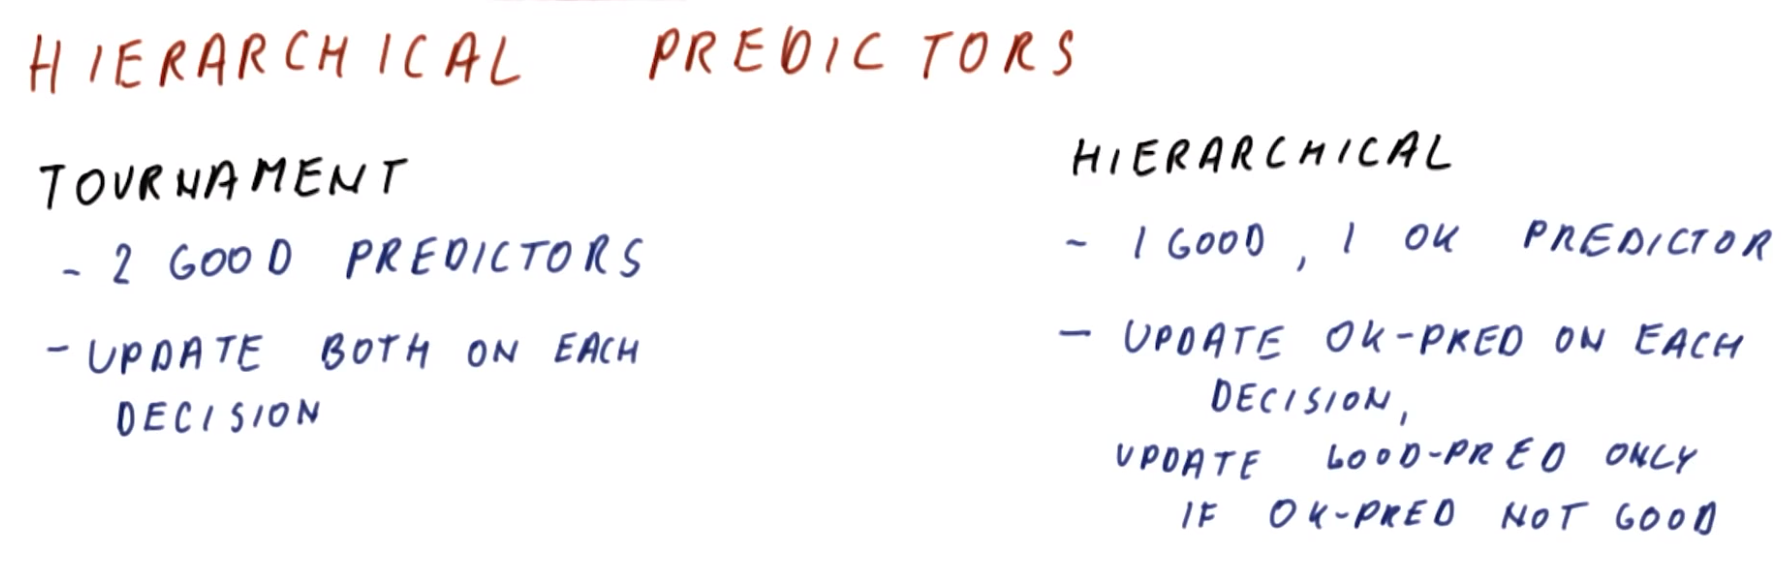 HIERARCHICAL PREDICTORS
TOURNAMENT
- 2 GOOD PREDICTORS
- UPDATE BOTH ON EACH
DECISION
HIERARCHICAL
- 1 GOOD, 1 OK PREDICTOR
- UPDATE OK-PRED ON EACH
DECISION,
UPDATE GOOD-PRED ONLY
IF OK-PRED NOT GOOD